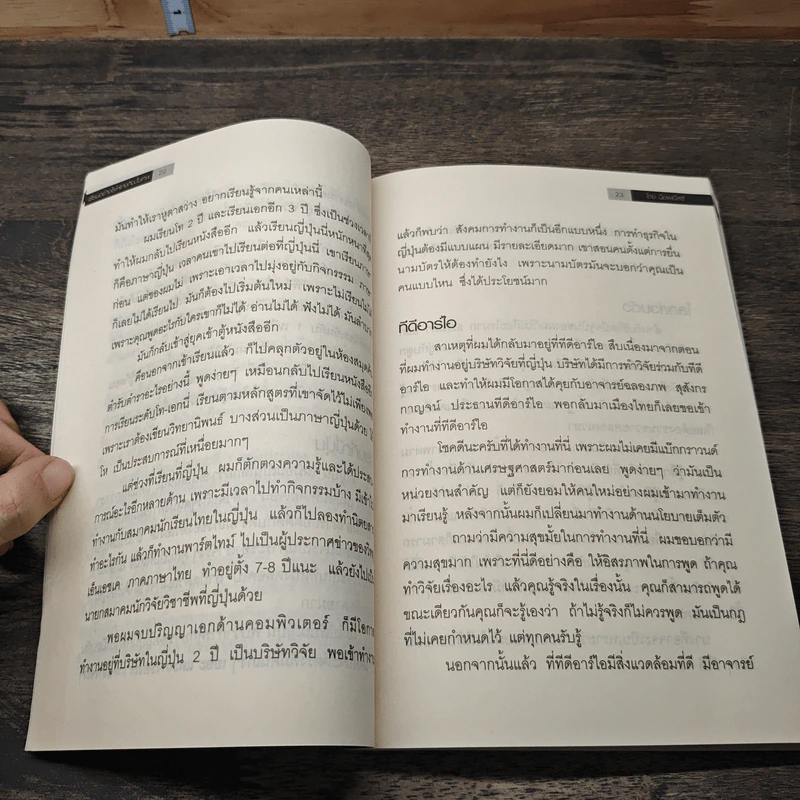 22
มันทำให้เราหูตาสว่าง อยากเรียนรู้จากคนเหล่านี้
ผมเรียนโท 2 ปี และเรียนเอกอีก 3 ปี ซึ่งเป็นช่วงเวลา
ทำให้ผมกลับไปเรียนหนังสืออีก แล้วเรียนญี่ปุ่นนี่หนักหนา
ก็คือภาษาญี่ปุ่น เวลาคนเขาไปเรียนต่อที่ญี่ปุ่นนี่ เขาเรียน
ก่อน แต่ของผมไม่ เพราะเอาเวลาไปมุ่งอยู่กับกิจกรรม
ก็เลยไม่ได้เรียนไป มันก็ต้องไปเริ่มต้นใหม่ เพราะไม่เรียน
เพราะคุณพูดอะไรกับใครเขาก็ไม่ได้ อ่านไม่ได้ ฟังไม่ได้
มันก็กลับเข้าสู่ยุคเข้าตู้หนังสืออีก
คือนอกจากเข้าเรียนแล้ว ก็ไปคลุกตัวอยู่ในห้องสมุด
ตำรับตำราอะไรอย่างนี้ พูดง่ายๆ เหมือนกลับไปเรียนหนังสือ
การเรียนระดับโท-เอกนี่ เรียนตามหลักสูตรที่เขาจัดไว้ไม่เพียงพอ
เพราะเราต้องเขียนวิทยานิพนธ์ บางส่วนเป็นภาษาญี่ปุ่นด้วย
โห เป็นประสบการณ์ที่เหนื่อยมากๆ
แต่ช่วงที่เรียนที่ญี่ปุ่น ผมก็ตักตวงความรู้และได้ประสบ
การณ์อะไรอีกหลายด้าน เพราะมีเวลาไปทำกิจกรรมบ้าง มีเข้าไป
ทำงานกับสมาคมนักเรียนไทยในญี่ปุ่น แล้วก็ไปลองทำนิตยสาร
ทำอะไรกัน แล้วก็ทำงานพาร์ตไทม์ ไปเป็นผู้ประกาศข่าวของวิทยุ
เอ็นเอชเค ภาคภาษาไทย ทำอยู่ตั้ง 7-8 ปีแนะ แล้วยังไปเป็น
นายกสมาคมนักวิจัยวิชาชีพที่ญี่ปุ่นด้วย
พอผมจบปริญญาเอกด้านคอมพิวเตอร์ ก็มีโอกาส
ทำงานอยู่ที่บริษัทในญี่ปุ่น 2 ปี เป็นบริษัทวิจัย พอเข้าทำงาน
23
แล้วก็พบว่า สังคมการทำงานก็เป็นอีกแบบหนึ่ง การทำธุรกิจใน
ญี่ปุ่นต้องมีแบบแผน มีรายละเอียดมาก เขาสอนคนตั้งแต่การยื่น
นามบัตรให้ต้องทำยังไง เพราะนามบัตรมันจะบอกว่าคุณเป็น
คนแบบไหน ซึ่งได้ประโยชน์มาก
ทีดีอาร์ไอ
สาเหตุที่ผมได้กลับมาอยู่ที่ทีดีอาร์ไอ สืบเนื่องมาจากตอน
ที่ผมทำงานอยู่บริษัทวิจัยที่ญี่ปุ่น บริษัทได้มีการทำวิจัยร่วมกับทีดี
อาร์ไอ และทำให้ผมมีโอกาสได้คุยกับอาจารย์ฉลองภพ สุสังกร
กาญจน์ ประธานทีดีอาร์ไอ พอกลับมาเมืองไทยก็เลยขอเข้า
ทำงานที่ทีดีอาร์ไอ
โชคดีนะครับที่ได้ทำงานที่นี่ เพราะผมไม่เคยมีแบ็กกราวนด์
การทำงานด้านเศรษฐศาสตร์มาก่อนเลย พูดง่ายๆ ว่ามันเป็น
หน่วยงานสำคัญ แต่ก็ยังยอมให้คนใหม่อย่างผมเข้ามาทำงาน
มาเรียนรู้ หลังจากนั้นผมก็เปลี่ยนมาทำงานด้านนโยบายเต็มตัว
ถามว่ามีความสุขมั้ยในการทำงานที่นี่ ผมขอบอกว่ามี
ความสุขมาก เพราะที่นี่ดีอย่างคือ ให้อิสรภาพในการพูด ถ้าคุณ
ทำวิจัยเรื่องอะไร แล้วคุณรู้จริงในเรื่องนั้น คุณก็สามารถพูดได้
ขณะเดียวกันคุณก็จะรู้เองว่า ถ้าไม่รู้จริงก็ไม่ควรพูด มันเป็นกฎ
ที่ไม่เคยกำหนดไว้ แต่ทุกคนรับรู้
นอกจากนั้นแล้ว ที่ทีดีอาร์ไอมีสิ่งแวดล้อมที่ดี มีอาจารย์